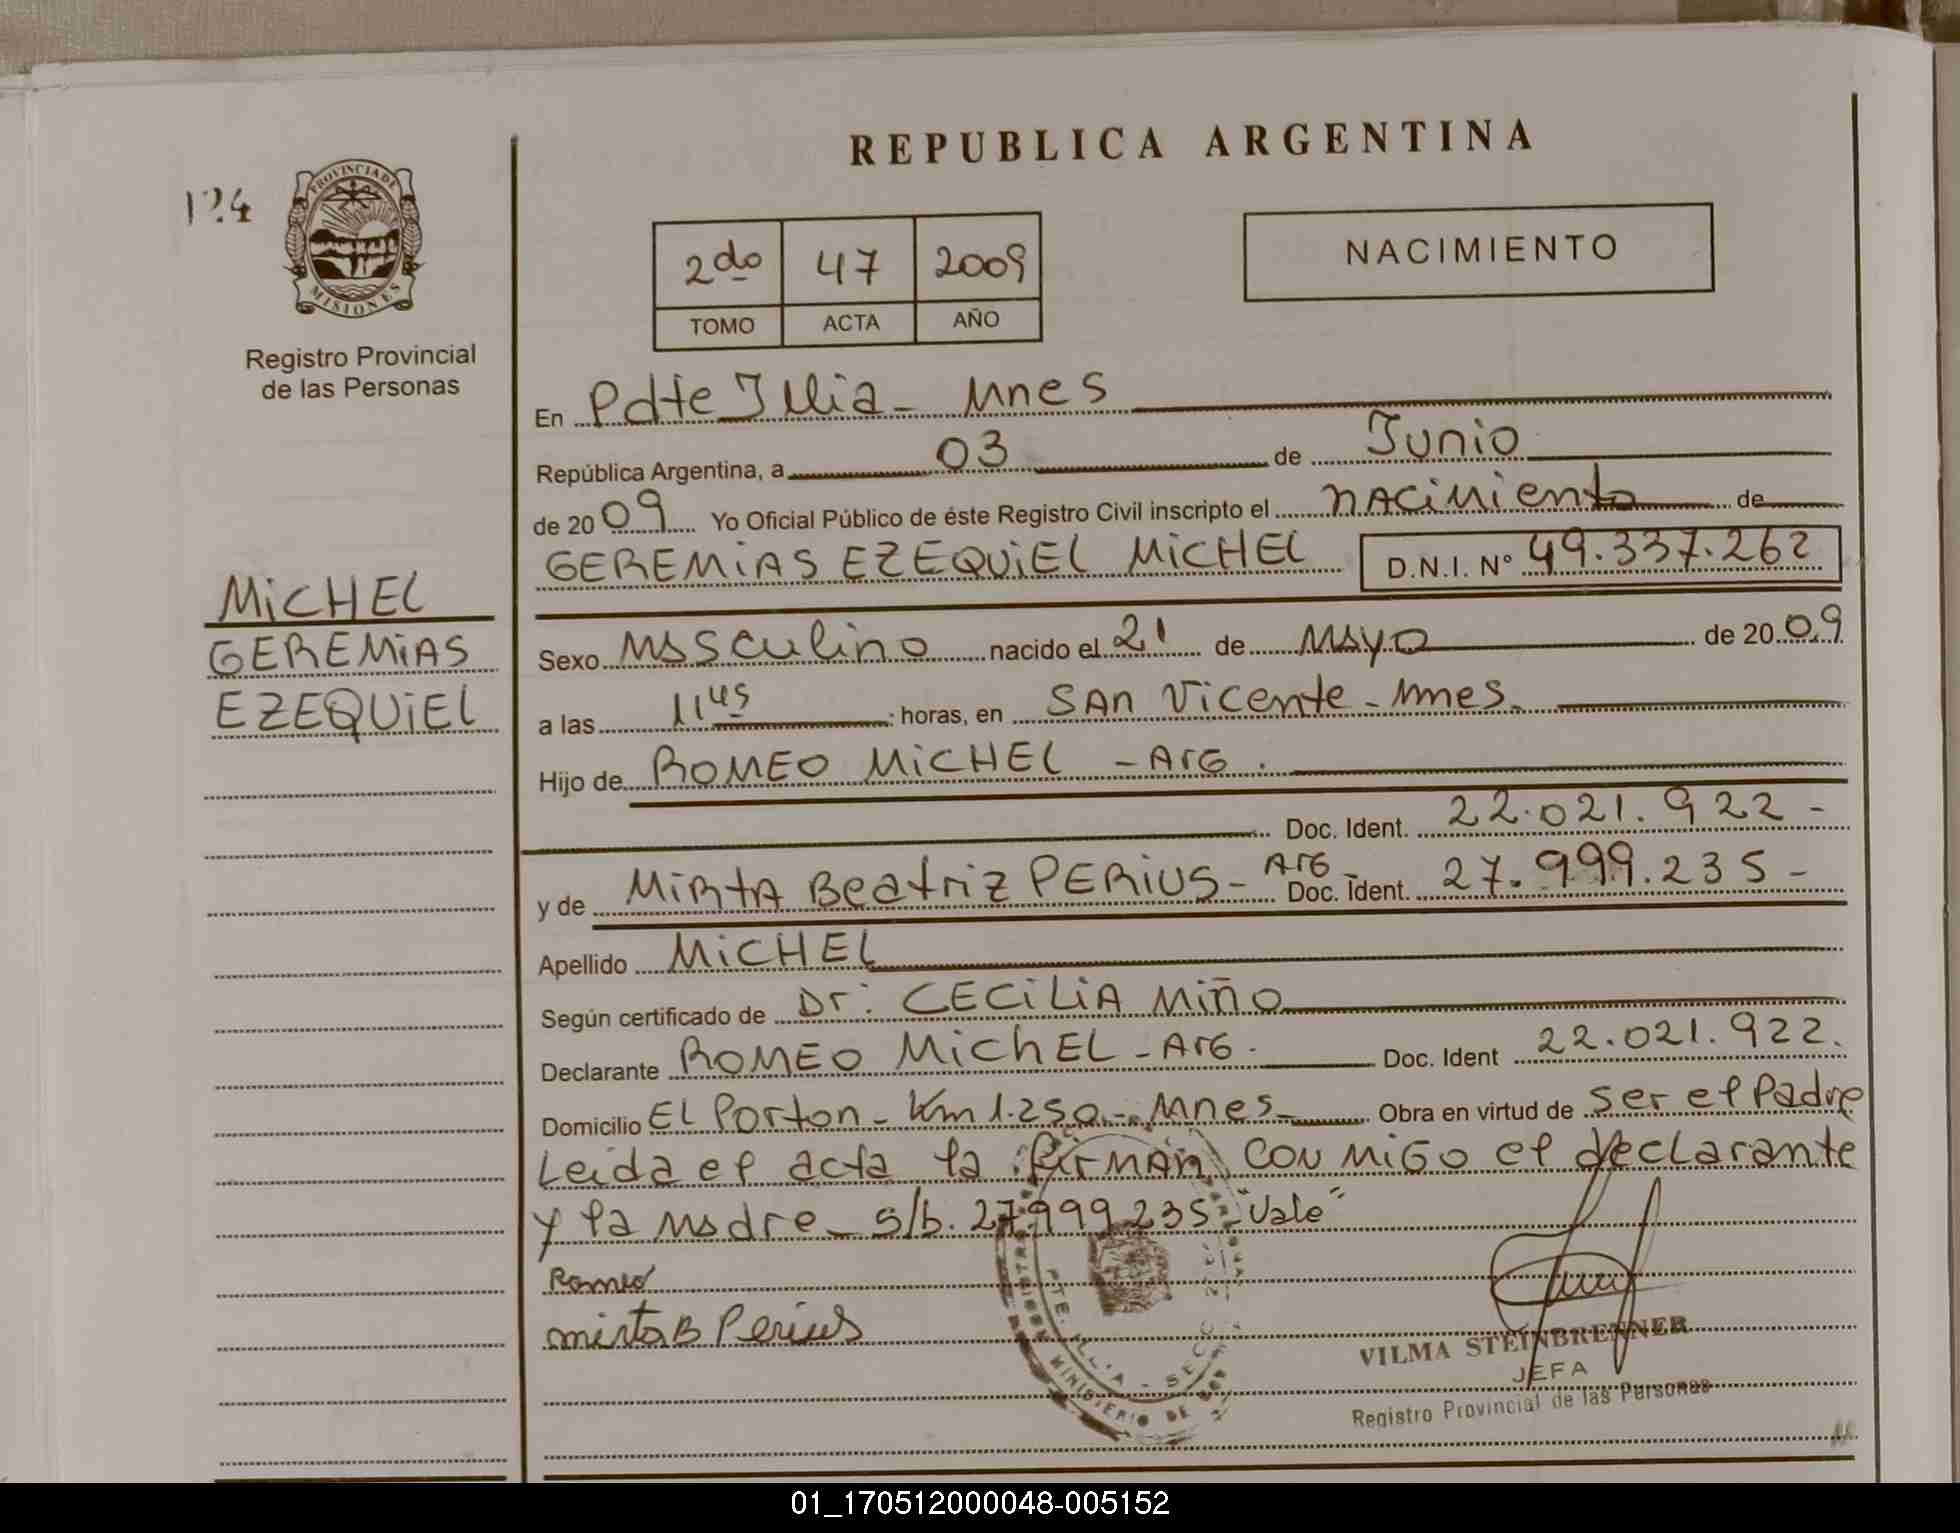 REPUBLICA ARGENTINA
124
PROVINCIA DE
MISIONES
Registro Provincial
de las Personas
2do 47 2009
TOMO ACTA AÑO
NACIMIENTO
En Pdte Illia - Mnes
República Argentina, a 03 de Junio
de 2009 Yo Oficial Público de éste Registro Civil inscripto el nacimiento de
GEREMIAS EZEQUIEL MICHEL D.N.I. Nº 49.337.262
MICHEL
GEREMIAS
EZEQUIEL
Sexo Masculino nacido el 21 de Mayo de 2009
a las 11 45 horas, en San Vicente - Mnes.
Hijo de ROMEO MICHEL - Arg.
Doc. Ident. 22.021.922 -
y de Mirta Beatriz PERIUS - Arg - Doc. Ident. 27.999.235 -
Apellido MICHEL
Según certificado de Dr: CECILIA Miño
Declarante ROMEO MichEL - Arg. Doc. Ident 22.021.922.
Domicilio El Porton - Km 1.250 - Mnes - Obra en virtud de ser el Padre
Leida el acta la firman conmigo el declarante
y la madre - s/b. 27999235 - "Vale"
Romeo
mirta B Perius
PTE. ILLIA - SECC
MINISTERIO DE GOB
VILMA STEINBRENNER
JEFA
Registro Provincial de las Personas
01_170512000048-005152